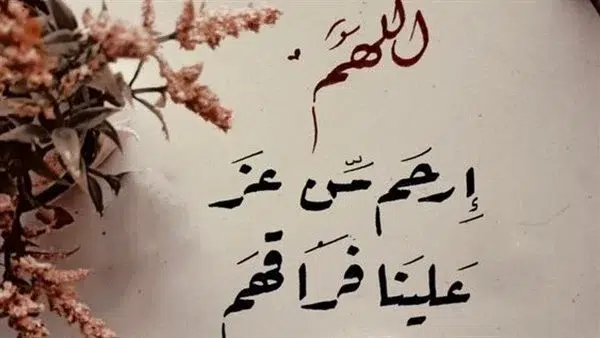 اللهم
إرحم من عز
علينا فراقهم